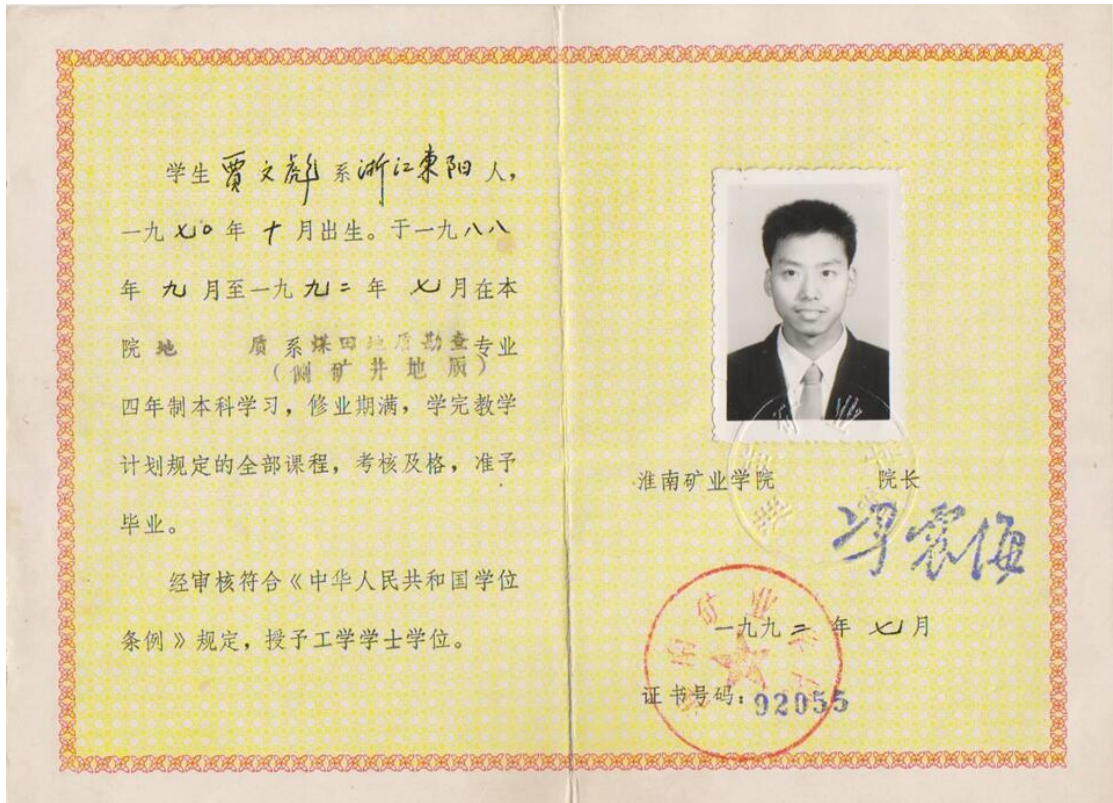 学生 贾文彪 系 浙江东阳 人，
一九七〇年十月出生。于一九八八
年九月至一九九二年七月在本
院地 质系煤田地质勘查专业
（侧矿井地质）
四年制本科学习，修业期满，学完教学
计划规定的全部课程，考核及格，准予
毕业。
经审核符合《中华人民共和国学位
条例》规定，授予工学学士学位。
淮南矿业学院 院长
冯震海
一九九二年七月
证书号码：92055
淮南矿业学院